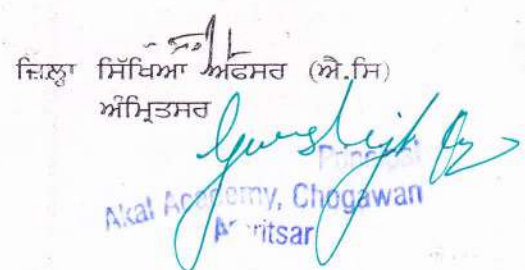 ਜ਼ਿਲ੍ਹਾ ਸਿੱਖਿਆ ਅਫਸਰ (ਐ.ਸਿ)
ਅੰਮ੍ਰਿਤਸਰ
Principal
Akal Academy, Chogawan
Amritsar